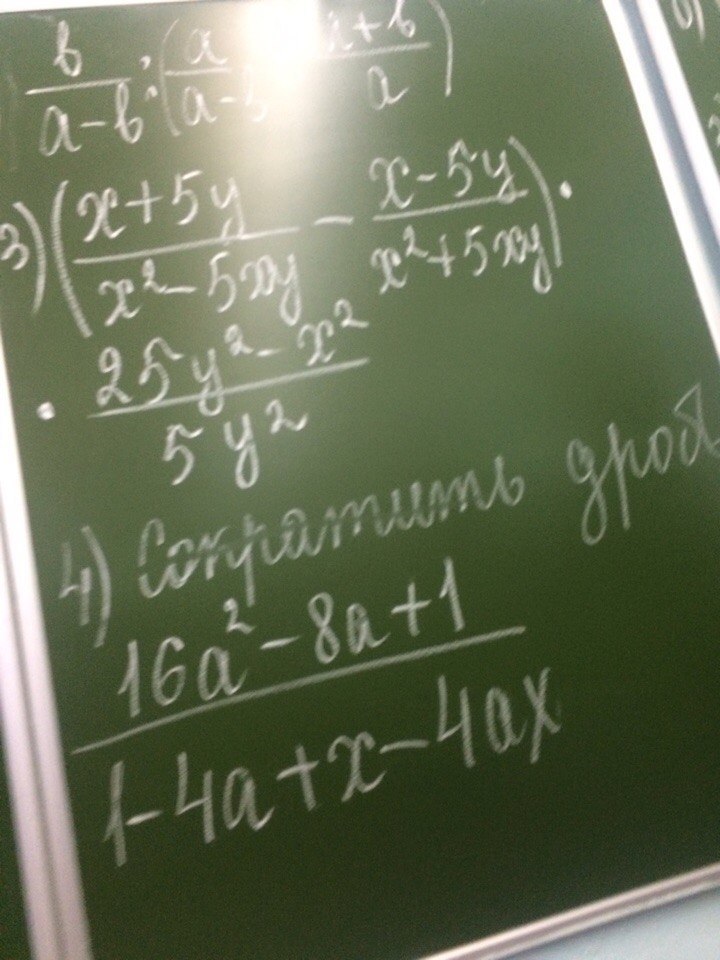 b/(a-b) : (a/(a-b) a+b/a)
3) ((x+5y)/(x²-5xy) - (x-5y)/(x²+5xy)) ·
· (25y²-x²)/(5y²)
4) Сократить дроб
(16a²-8a+1)/(1-4a+x-4ax)